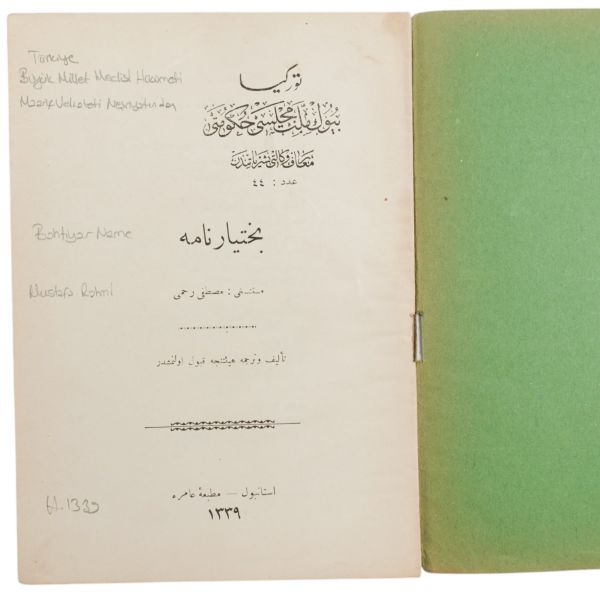 توركيا
بيوك ملت مجلسى حكومتى
معارف وكالتى نشرياتندن
عدد : ٤٤
بختيار نامه
مصطفى رحمى
تأليف وترجمه هيئتنجه قبول اولنمشدر
استانبول — مطبعهٔ عامره
١٣٣٩
Türkiye
Büyük Millet Meclisi Hükümeti
Maarif Vekaleti Neşriyatından
Bahtiyar Name
Mustafa Rahmi
H. 1339